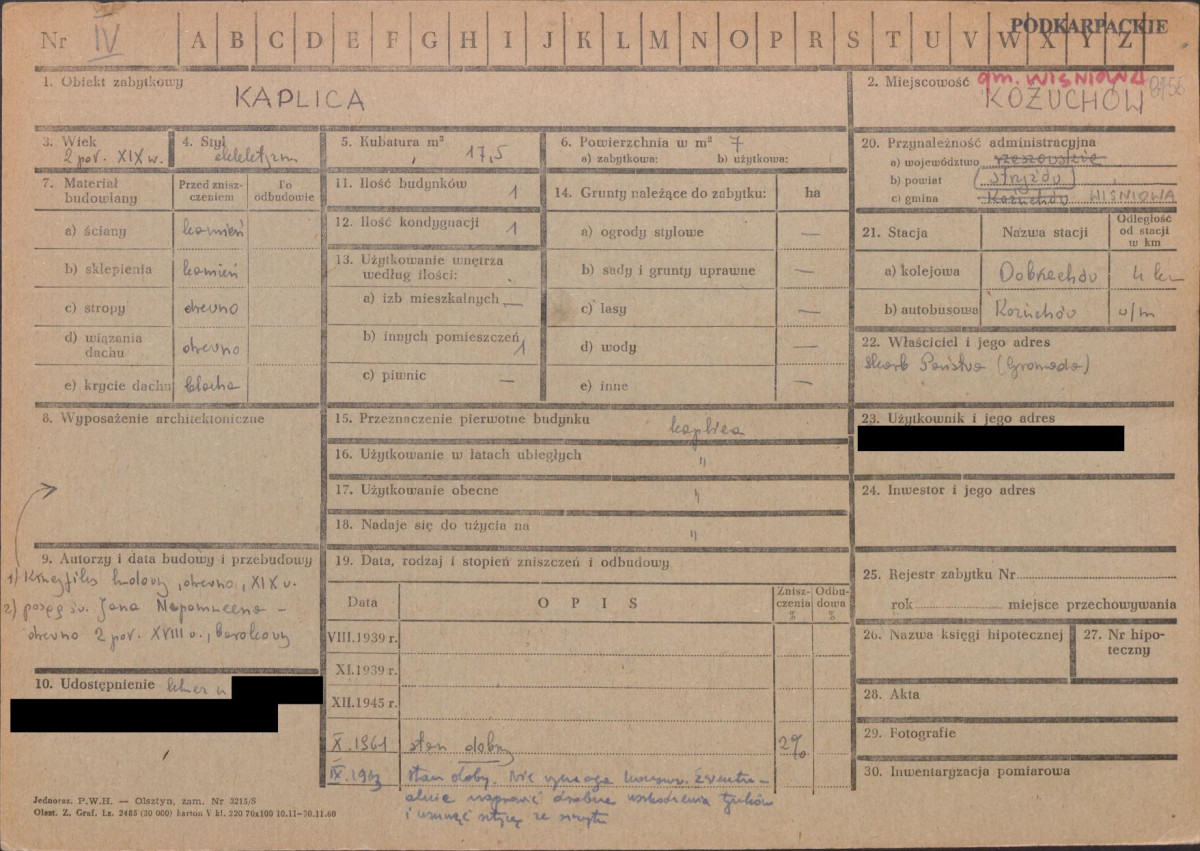 PODKARPACKIE
Nr IV A B C D E F G H I J K L M N O P R S T U V W X Y Z
1. Obiekt zabytkowy
KAPLICA
2. Miejscowość gm. WIŚNIOWA
KOŻUCHÓW
3. Wiek
2 poł. XIX w.
4. Styl
eklektyzm
5. Kubatura m³
17,5
6. Powierzchnia w m² 7
a) zabytkowa: b) użytkowa:
7. Materiał budowlany
Przed zniszczeniem
Po odbudowie
a) ściany kamień
b) sklepienia kamień
c) stropy drewno
d) wiązania dachu drewno
e) krycie dachu blacha
11. Ilość budynków 1
12. Ilość kondygnacji 1
13. Użytkowanie wnętrza
według ilości:
a) izb mieszkalnych —
b) innych pomieszczeń 1
c) piwnic —
14. Grunty należące do zabytku: ha
a) ogrody stylowe —
b) sady i grunty uprawne —
c) lasy —
d) wody —
e) inne —
20. Przynależność administracyjna
a) województwo rzeszowskie
b) powiat strzyżów
c) gmina Kożuchów WIŚNIOWA
21. Stacja Nazwa stacji Odległość od stacji w km
a) kolejowa Dobrzechów 4 km
b) autobusowa Kożuchów w/m
22. Właściciel i jego adres
Skarb Państwa (Gromada)
8. Wyposażenie architektoniczne
9. Autorzy i data budowy i przebudowy
1) Krucyfiks ludowy, drewno, XIX w.
2) posąg św. Jana Nepomucena -
drewno 2 poł. XVIII w., barokowy
10. Udostępnienie klucz u
15. Przeznaczenie pierwotne budynku kaplica
16. Użytkowanie w latach ubiegłych "
17. Użytkowanie obecne "
18. Nadaje się do użycia na "
19. Data, rodzaj i stopień zniszczeń i odbudowy
Data OPIS Zniszczenia % Odbudowa %
VIII.1939 r.
XI.1939 r.
XII.1945 r.
X.1961 stan dobry 2%
IX.1963 stan dobry. Nie wymaga konserw. Ewentu-
alnie naprawić drobne uszkodzenia tynków
i usunąć
23. Użytkownik i jego adres
24. Inwestor i jego adres
25. Rejestr zabytku Nr
rok miejsce przechowywania
26. Nazwa księgi hipotecznej
27. Nr hipoteczny
28. Akta
29. Fotografie
30. Inwentaryzacja pomiarowa
Jednoraz. P.W.H. — Olsztyn, zam. Nr 3215/S
Olszt. Z. Graf. Lz. 2485 (30 000) karton V kl. 220 70x100 10.11-30.11.60